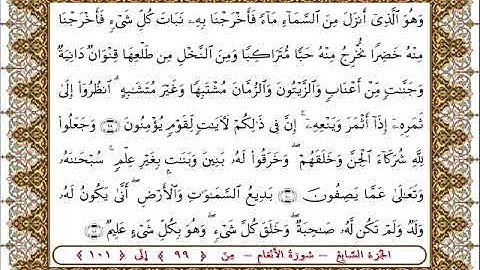 وَهُوَ ٱلَّذِىٓ أَنزَلَ مِنَ ٱلسَّمَآءِ مَآءً فَأَخْرَجْنَا بِهِۦ نَبَاتَ كُلِّ شَىْءٍ فَأَخْرَجْنَا
مِنْهُ خَضِرًا نُّخْرِجُ مِنْهُ حَبًّا مُّتَرَاكِبًا وَمِنَ ٱلنَّخْلِ مِن طَلْعِهَا قِنْوَانٌ دَانِيَةٌ
وَجَنَّـٰتٍ مِّنْ أَعْنَابٍ وَٱلزَّيْتُونَ وَٱلرُّمَّانَ مُشْتَبِهًا وَغَيْرَ مُتَشَـٰبِهٍ ۗ ٱنظُرُوٓا۟ إِلَىٰ
ثَمَرِهِۦٓ إِذَآ أَثْمَرَ وَيَنْعِهِۦٓ ۚ إِنَّ فِى ذَٰلِكُمْ لَـَٔايَـٰتٍ لِّقَوْمٍ يُؤْمِنُونَ ۝٩٩ وَجَعَلُوا۟
لِلَّهِ شُرَكَآءَ ٱلْجِنَّ وَخَلَقَهُمْ ۖ وَخَرَقُوا۟ لَهُۥ بَنِينَ وَبَنَـٰتٍۭ بِغَيْرِ عِلْمٍ ۚ سُبْحَـٰنَهُۥ
وَتَعَـٰلَىٰ عَمَّا يَصِفُونَ ۝١٠٠ بَدِيعُ ٱلسَّمَـٰوَٰتِ وَٱلْأَرْضِ ۖ أَنَّىٰ يَكُونُ لَهُۥ
وَلَدٌ وَلَمْ تَكُن لَّهُۥ صَـٰحِبَةٌ ۖ وَخَلَقَ كُلَّ شَىْءٍ ۖ وَهُوَ بِكُلِّ شَىْءٍ عَلِيمٌ ۝١٠١
الجزء السابع – سورة الأنعام – من ﴿ ٩٩ ﴾ إلى ﴿ ١٠١ ﴾